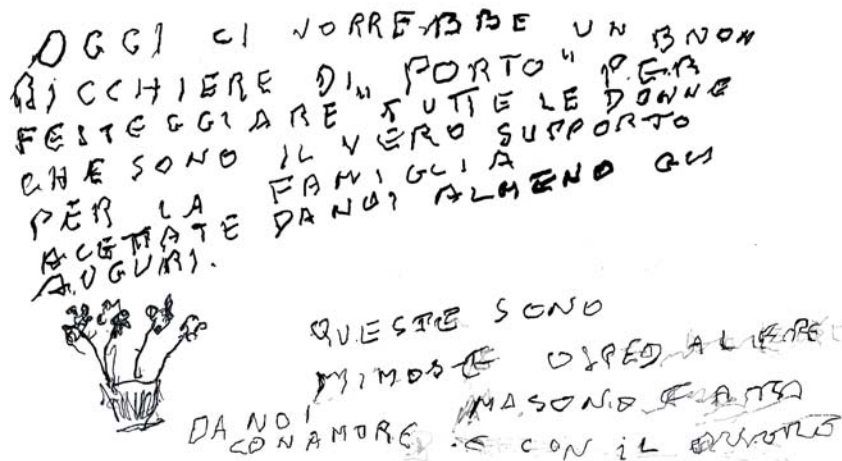 OGGI CI VORREBBE UN BUON
BICCHIERE DI "PORTO" PER
FESTEGGIARE TUTTE LE DONNE
CHE SONO IL VERO SUPPORTO
PER LA FAMIGLIA
ACETTATE DA NOI ALMENO GLI
AUGURI.
QUESTE SONO
MIMOSE OSPEDALIERE
MA SONO
DA NOI
CON AMORE E CON IL